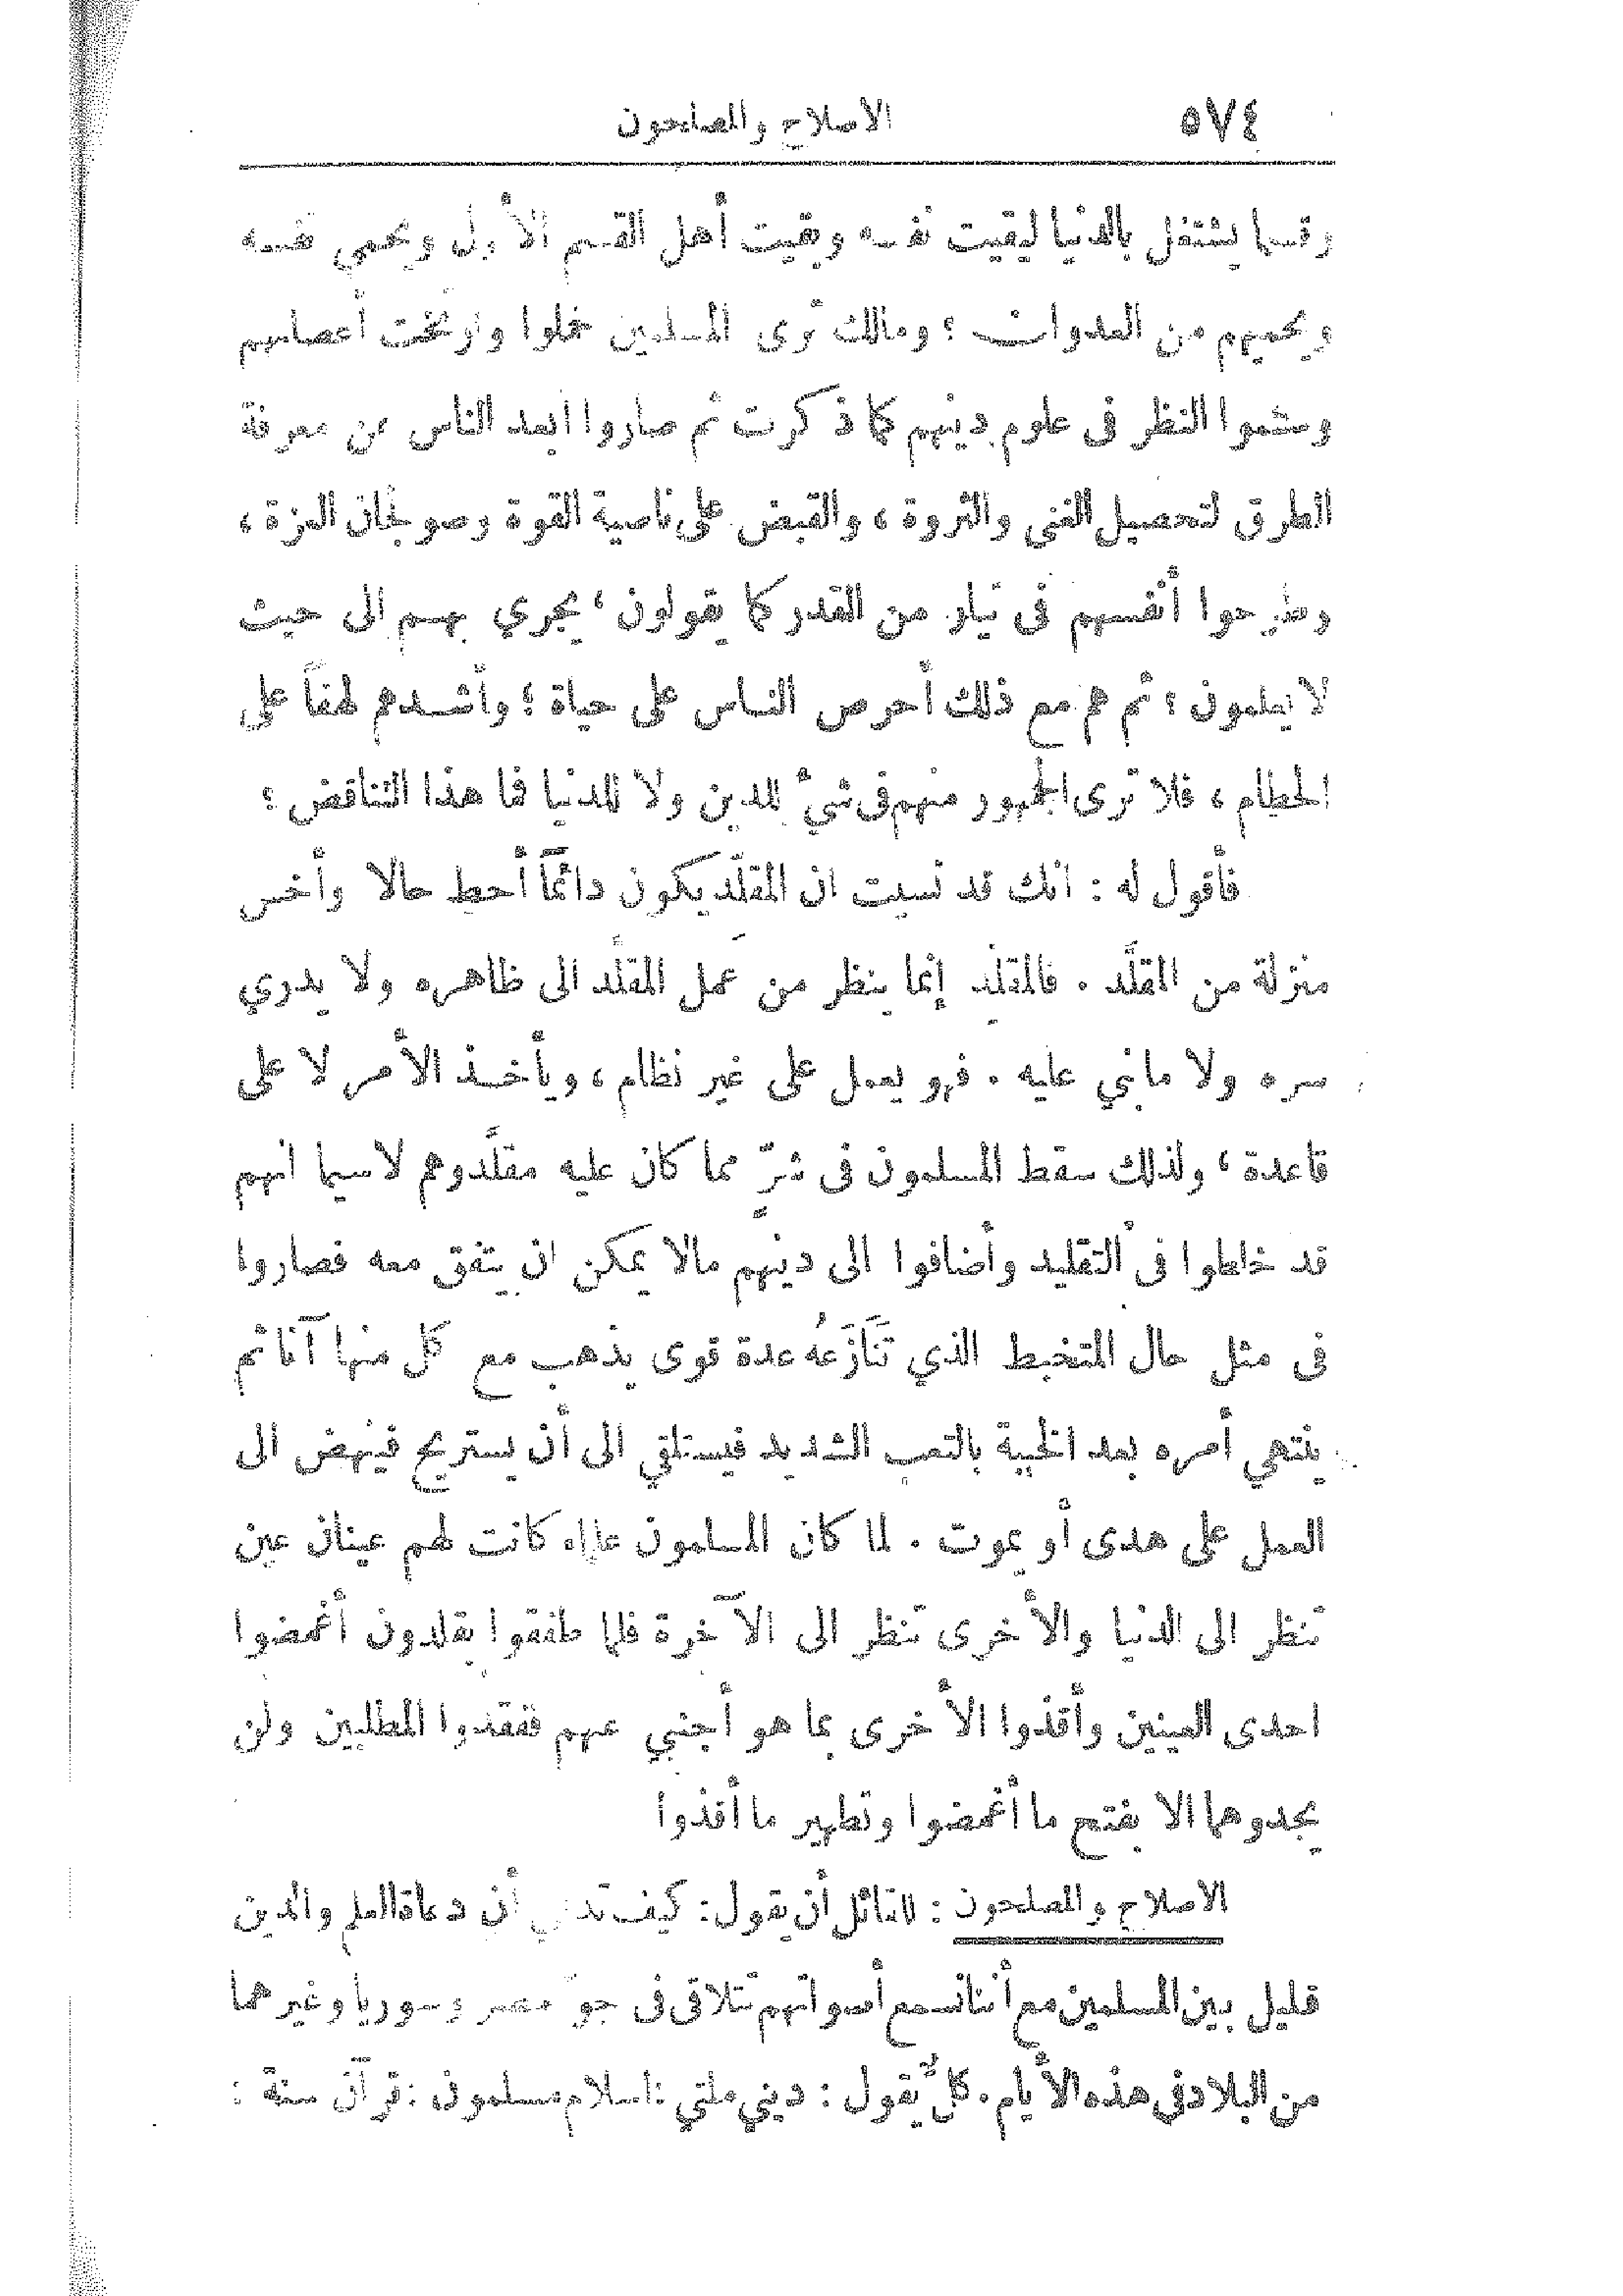 ٥٧٤ الاصلاح والمصلحون
وقسما يشتغل بالدنيا ليقيت نفسه ويقيت أهل القسم الأول ويحمي نفسه
ويحميهم من العدوان ؟ ومالك ترى المسلمين خملوا وارتخت أعصابهم
وسئموا النظر فى علوم دينهم كما ذكرت ثم صاروا ابعد الناس عن معرفة
الطرق لتحصيل الغنى والثروة ، والقبض على ناصية القوة وصولجان العزة ،
وطرحوا أنفسهم فى تيار من القدر كما يقولون ، يجري بهم الى حيث
لا يعلمون ؟ ثم هم مع ذلك أحرص الناس على حياة ؛ وأشدهم لهفاً على
الحطام ، فلا ترى الجمهور منهم فى شيءٍ للدين ولا للدنيا فما هذا التناقض ؟
فأقول له : انك قد نسيت ان المقلِّد يكون دائمًا أحط حالا وأخس
منزلة من المقلَّد . فالمقلِّد إنما ينظر من عمل المقلَّد الى ظاهره ولا يدري
سره ولا مابني عليه . فهو يعمل على غير نظام ، ويأخذ الأمر لا على
قاعدة ، ولذلك سقط المسلمون فى شرٍّ مما كان عليه مقلَّدوهم لاسيما انهم
قد خلطوا فى التقليد وأضافوا الى دينهم مالا يمكن ان يتفق معه فصاروا
فى مثل حال المتخبط الذي تَنَازَعُه عدة قوى يذهب مع كل منها آنا ثم
ينتهي أمره بعد الخيبة بالتعب الشديد فيستلقي الى أن يستريح فينهض الى
العمل على هدى أو يموت . لما كان المسلمون علماء كانت لهم عينان عين
تنظر الى الدنيا والأخرى تنظر الى الآخرة فلما طفقوا يقلدون أغمضوا
احدى العينين وأقذوا الأخرى بما هو أجنبي عنهم ففقدوا المطلبين ولن
يجدوهما الا بفتح ما أغمضوا وتطهير ما أقذوا
الاصلاح والمصلحون : لقائل أن يقول : كيف تدعي أن دعاة العلم والدين
قليل بين المسلمين مع أننا نسمع أصواتهم تتلاقى فى جوّ مصر وسوريا وغيرهما
من البلاد فى هذه الأيام . كلٌّ يقول : ديني ملتي : اسلام مسلمون : قرآن سنة :